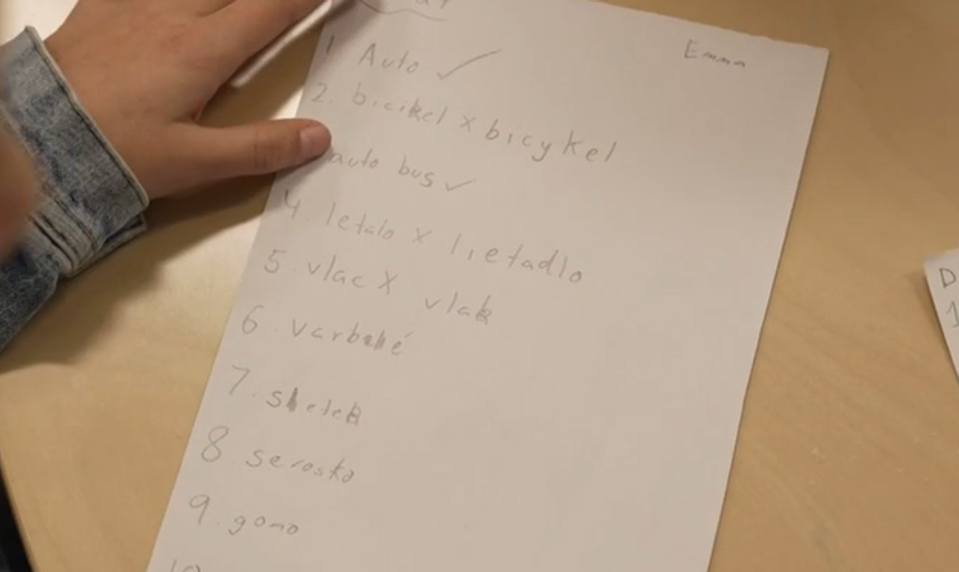 Emma
1. Auto ✓
2. bicikel x bicykel
auto bus ✓
4. letalo x lietadlo
5. vlac X vlak
6. varbelié
7. sletek
8 seroska
9. gomo
10